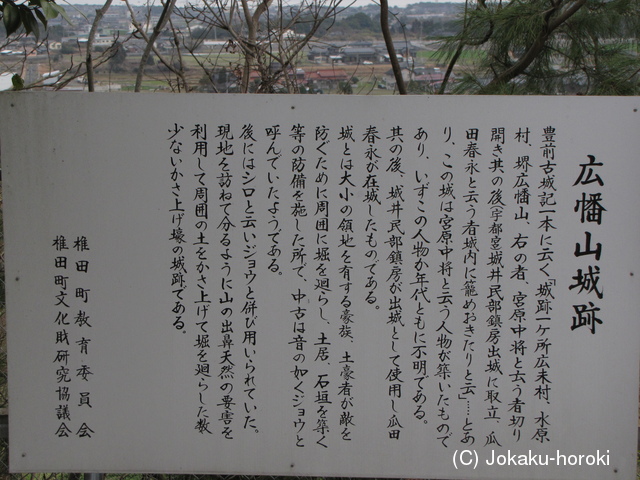 広幡山城跡
豊前古城記一本に云く「城跡一ケ所広末村、水原
村、堺広幡山、右の者、宮原中将と云う者切り
開き其の後(宇都宮)城井民部鎮房出城に取立、瓜
田春永と云う者城内に籠めおきたりと云」…とあ
り、この城は宮原中将と云う人物が築いたもので
あり、いずこの人物か年代ともに不明である。
其の後、城井民部鎮房が出城として使用し瓜田
春永が在城したものである。
城とは大小の領地を有する豪族、土豪者が敵を
防ぐために周囲に堀を廻らし、土居、石垣を築く
等の防備を施した所で、中古は音の如くジョウと
呼んでいたようである。
後にはシロと云いジョウと併び用いられていた。
現地を訪ねて分るように山の出鼻天然の要害を
利用して周囲の土をかき上げて堀を廻らした数
少ないかき上げ壕の城跡である。
椎田町教育委員会
椎田町文化財研究協議会
(C) Jokaku-horoki